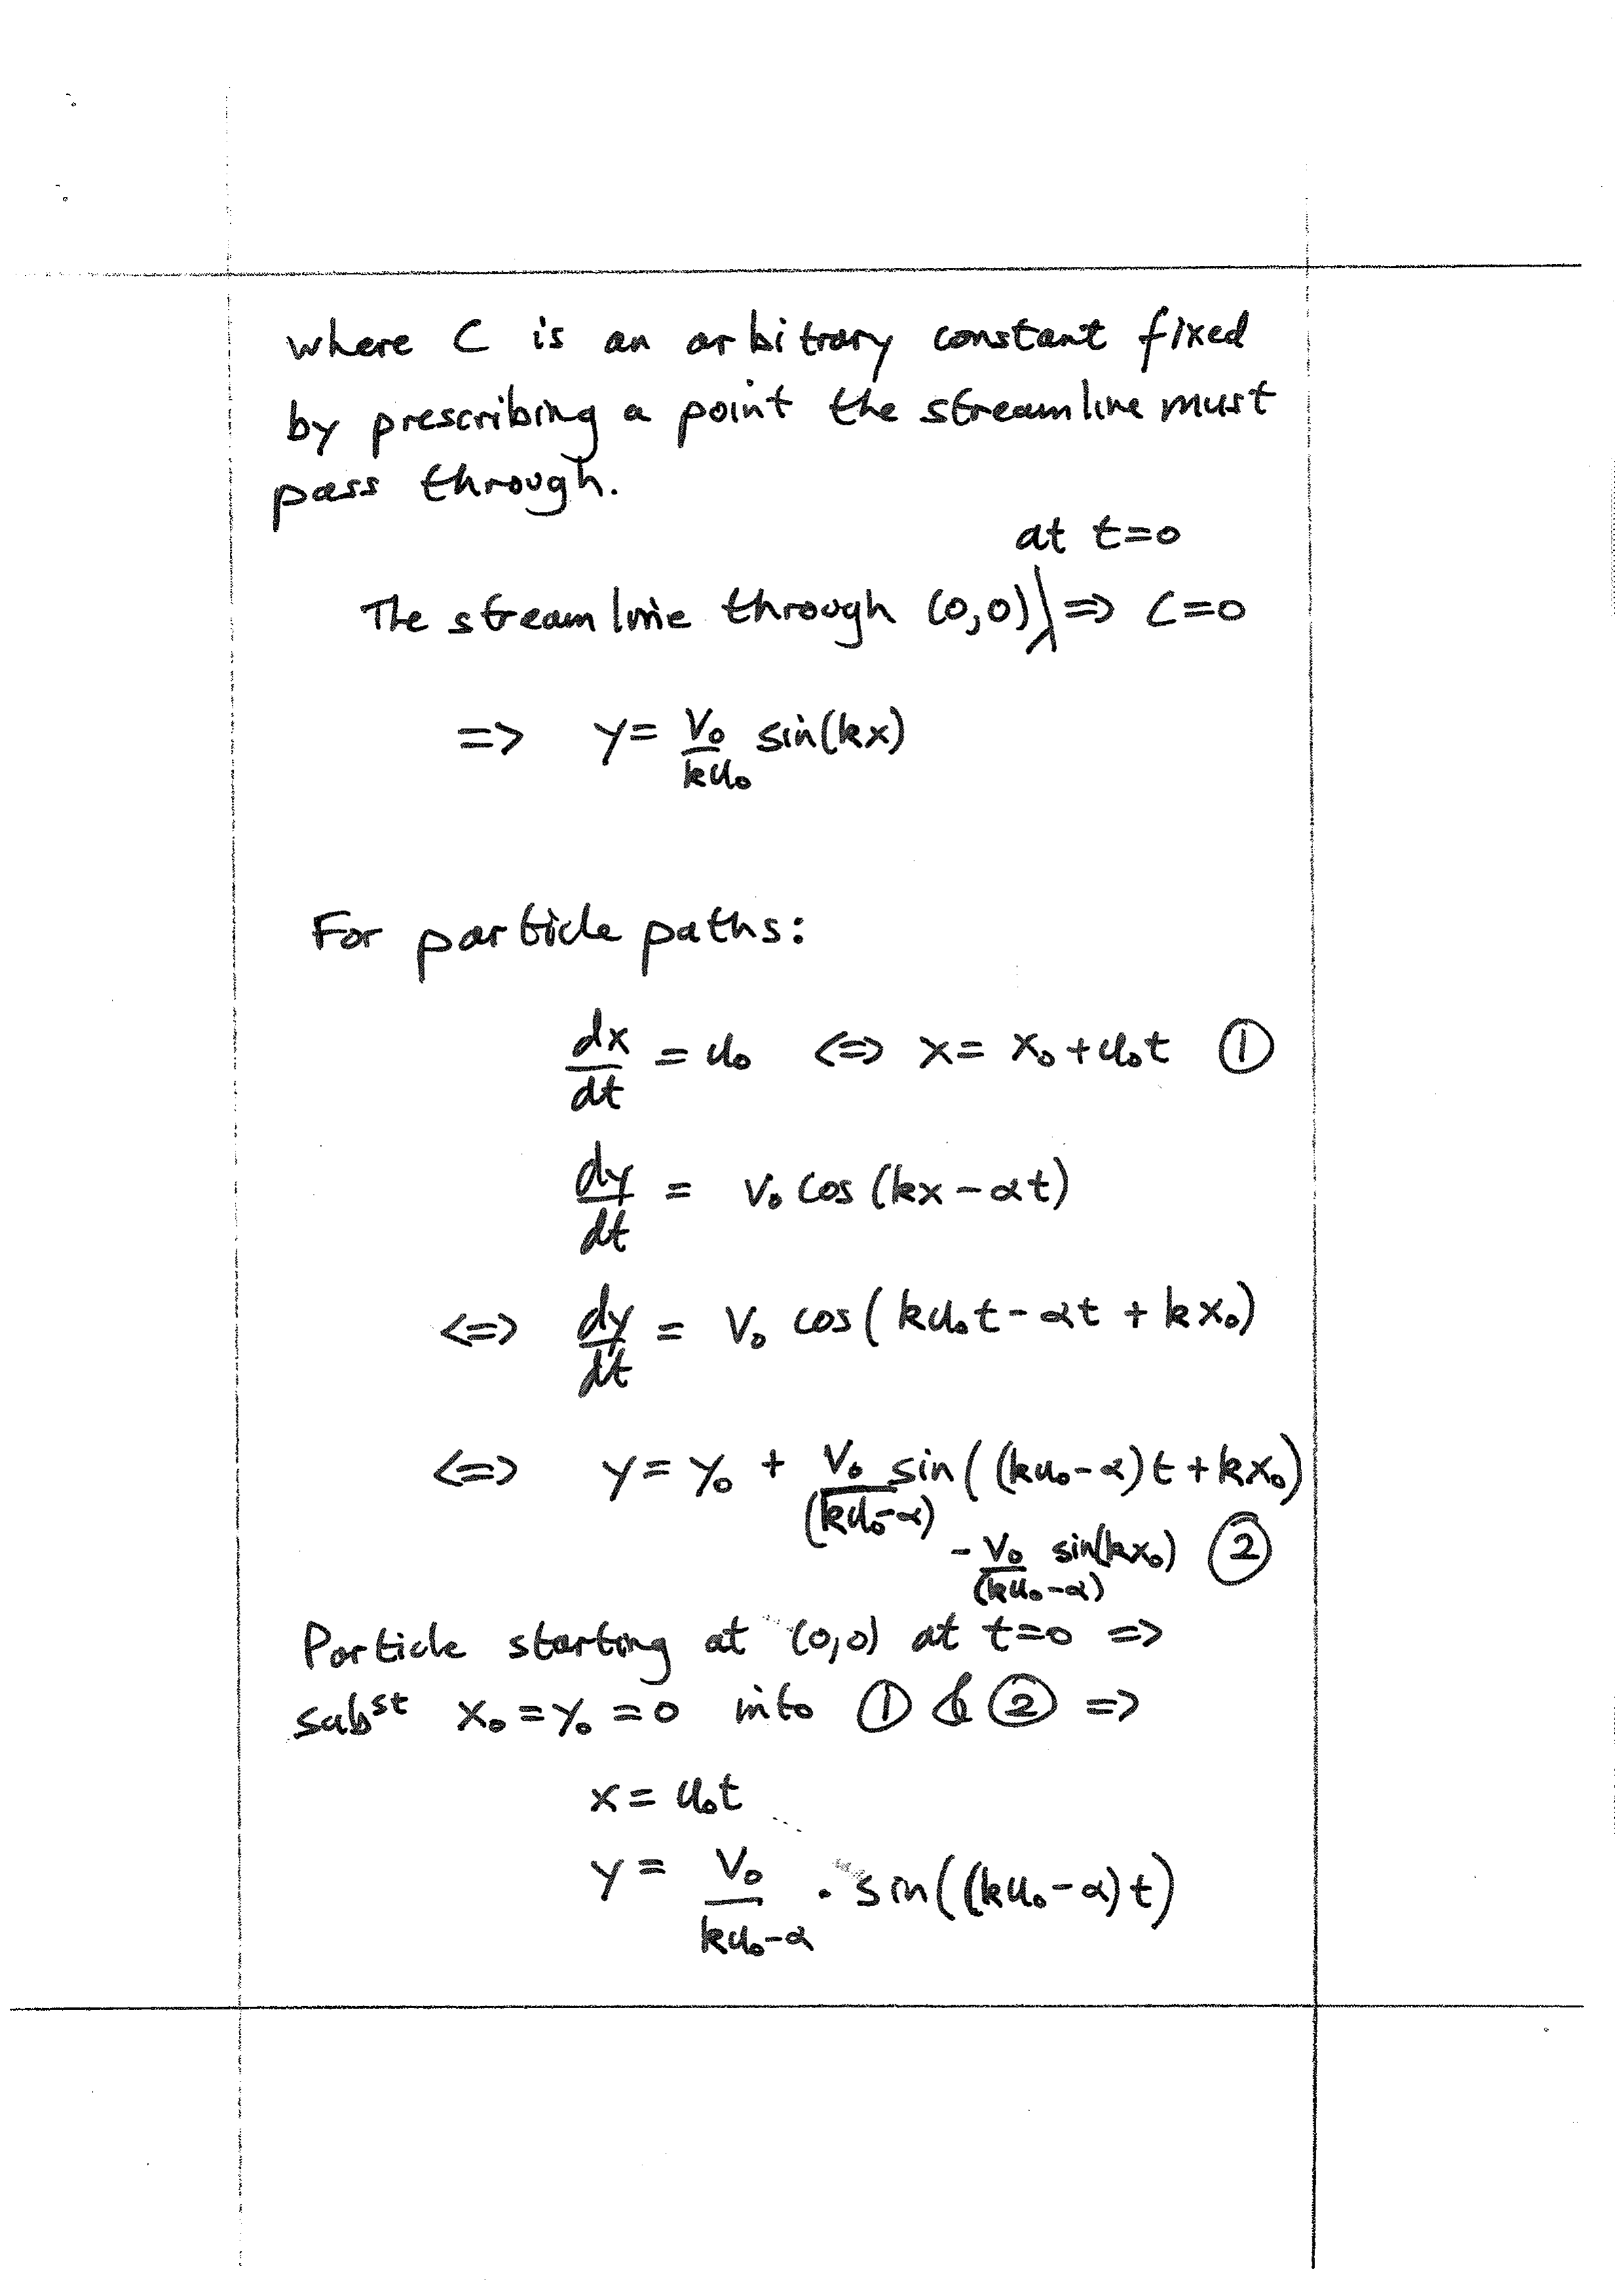 where C is an arbitrary constant fixed
by prescribing a point the streamline must
pass through.
at t=0
The streamline through (0,0) ⇒ C=0
=> y = V₀/ku₀ sin(kx)
For particle paths:
dx/dt = u₀ <=> x = x₀ + u₀t ①
dy/dt = V₀ cos(kx - αt)
<=> dy/dt = V₀ cos(ku₀t - αt + kx₀)
<=> y = y₀ + V₀/(ku₀-α) sin((ku₀-α)t + kx₀)
- V₀/(ku₀-α) sin(kx₀) ②
Particle starting at (0,0) at t=0 =>
subst x₀ = y₀ = 0 into ① & ② =>
x = u₀t
y = V₀/ku₀-α · sin((ku₀-α)t)